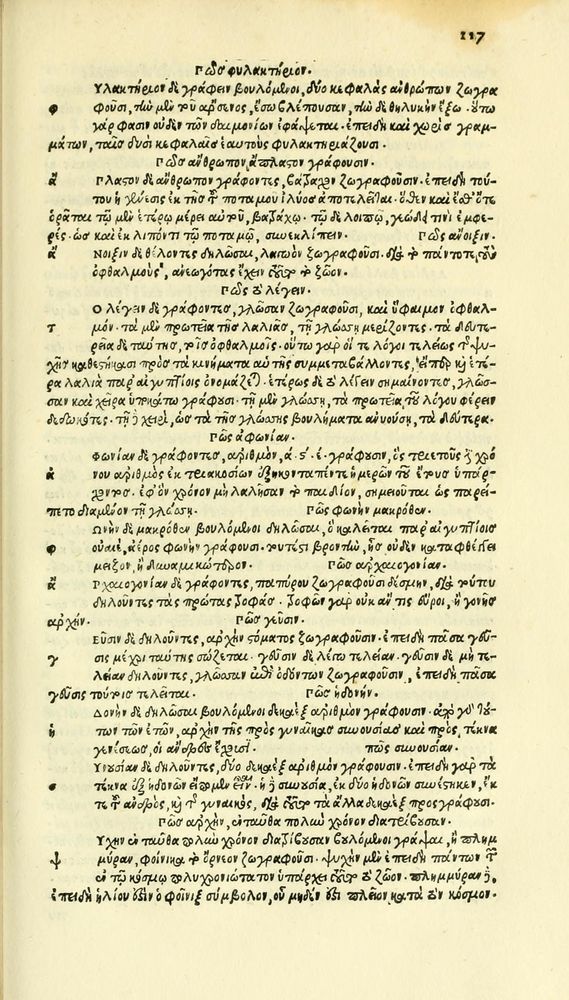 117
Πῶς φυλακτήριον.
Υλακτήριον δὲ γράφειν βουλόμενοι, δύο κεφαλὰς ἀνθρώπων ζωγρα
φ φοῦσι, τὴν μὲν τοῦ ἄρσενος, ἔσω βλέπουσαν, τὴν δὲ θηλυκὴν ἔξω. οὕτω
γάρ φασιν οὐδὲν τῶν δαιμονίων ἐφάψεται. ἐπειδὴ καὶ χωρὶς γραμ-
μάτων, ταῖς δυσὶ κεφαλαῖς ἑαυτοὺς φυλακτηριάζουσι.
Πῶς ἄνθρωπον ἄπλαστον γράφουσιν.
ἄ Πλαστον δὲ ἄνθρωπον γράφοντες, βάτραχον ζωγραφοῦσιν. ἐπειδὴ τού-
του ἡ γένεσις ἐκ τῆς τοῦ ποταμοῦ ἰλύος ἀποτελεῖται. ὅθεν καὶ ἔσθ' ὅτε
ὁρᾶται τῷ μὲν ἑτέρῳ μέρει αὐτοῦ, βατράχῳ. τῷ δὲ λοιπῷ, γεώδει τινὶ ἐμφε-
ρές. ὡς καὶ ἐκλιπόντι τῷ ποταμῷ, συνεκλίπειν. Πῶς ἄνοιξιν.
ἄ Νοιξιν δὲ θέλοντες δηλῶσαι, λαγωὸν ζωγραφοῦσι. διὰ τὸ πάντοτε τοὺς
ὀφθαλμοὺς, ἀνεῳγότας ἔχειν τοῦτο τὸ ζῶον.
Πῶς τὸ λέγειν.
Ο λέγειν δὲ γράφοντες, γλῶσσαν ζωγραφοῦσι, καὶ ὕφαιμον ὀφθαλ-
τ μόν. τὰ μὲν πρωτεῖα τῆς λαλιᾶς, τῇ γλώσσῃ μερίζοντες. τὰ δευτε-
ρεῖα δὲ ταύτης, τοῖς ὀφθαλμοῖς. οὕτω γὰρ οἱ λόγοι τελείως τῆς ψυ-
χῆς καθεστήκασι πρὸς τὰ κινήματα αὐτῆς συμμεταβάλλοντες, εἴπερ καὶ ἑτέ-
ρα λαλιὰ παρ' αἰγυπτίοις ὀνομάζεται. ἑτέρως δὲ τὸ λέγειν σημαίνοντες, γλῶσ-
σαν καὶ χεῖρα ὑποκάτω γράφουσι. τῇ μὲν γλώσσῃ, τὰ πρωτεῖα τοῦ λόγου φέρειν
δεδωκότες. τῇ χειρὶ, ὡς τὰ τῆς γλώσσης βουλήματα ἀνυούσῃ, τὰ δεύτερα.
Πῶς ἀφωνίαν.
φωνίαν δὲ γράφοντες, ἀριθμὸν, ͵α. ϟ. ε. γράφουσιν, ὃς τριετοῦς ἐστὶ χρό
ἀ νου ἀριθμὸς ἐκ τριακοσίων ἑξηκονταπέντε ἡμερῶν τοῦ ἔτους ὑπάρ-
χοντος. ἐφ' ὃν χρόνον μὴ λαλῆσαν τὸ παιδίον, σημειοῦται ὡς παρεί-
πετο διαμένον τῇ γλώσσῃ. Πῶς φωνὴν μακρόθεν.
Ωνὴν δὲ μακρόθεν βουλόμενοι δηλῶσαι, ὃ καλεῖται παρ' αἰγυπτίοις
φ οὐαιὲ, ἀέρος φωνὴν γράφουσι. τουτέστι βροντὴν, ἧς οὐδὲν καταφθέγγεται
μεῖζον, ἢ δυναμικώτερον. Πῶς ἀρχαιογονίαν.
ἄ Ρχαιογονίαν δὲ γράφοντες, παπύρου ζωγραφοῦσι δέσμην, διὰ τούτου
δηλοῦντες τὰς πρώτας τροφάς. τροφῶν γὰρ οὐκ ἄν τις εὕροι, ἢ γονῆς
ἀρχήν. Πῶς γεῦσιν.
Εῦσιν δὲ δηλοῦντες, ἀρχὴν στόματος ζωγραφοῦσι. ἐπειδὴ πᾶσα γεῦ-
γ σις μέχρι ταύτης σώζεται. γεῦσιν δὲ λέγω τελείαν. γεῦσιν δὲ μὴ τε-
λείαν δηλοῦντες, γλῶσσαν ἐπὶ ὀδόντων ζωγραφοῦσιν, ἐπειδὴ πᾶσα
γεῦσις τούτοις τελεῖται. Πῶς ἡδονήν.
Δονὴν δὲ δηλῶσαι βουλόμενοι δεκαὲξ ἀριθμὸν γράφουσιν. ἀπὸ γὰρ τού-
ἡ των τῶν ἐτῶν, ἀρχὴν τῆς πρὸς γυναῖκας συνουσίας καὶ πρὸς τέκνα
γενέσεως, οἱ ἄνδρες ἔχουσι. πῶς συνουσίαν.
Υνουσίαν δὲ δηλοῦντες, δύο δεκαὲξ ἀριθμοὺς γράφουσιν. ἐπειδὴ γὰρ τὰ
σ τέκνα ἐξ ἡδονῶν εἴπομεν εἶναι. ἡ δὲ συνουσία, ἐκ δύο ἡδονῶν συνέστηκεν, ἔκ
τε τοῦ ἀνδρὸς, καὶ τῆς γυναικός, διὰ τοῦτο τὰ ἄλλα δεκαὲξ προσγράφουσι.
Πῶς ἀρχὴν, ἐνταῦθα πολὺν χρόνον διατρίβουσαν.
Υχὴν ἐνταῦθα πολὺν χρόνον διατρίβουσαν βουλόμενοι γράψαι, ἢ πλημ
ψ μύραν, φοίνικα τὸ ὄρνεον ζωγραφοῦσι. ψυχὴν μὲν ἐπειδὴ πάντων τῶν
ἐν τῷ κόσμῳ πολυχρονιώτατον ὑπάρχει τοῦτο τὸ ζῶον. πλημμύραν δὲ,
ἐπειδὴ ἡλίου ἐστὶν ὁ φοῖνιξ σύμβολον, οὗ μηδέν ἐστι πλεῖον κατὰ τὸν κόσμον.